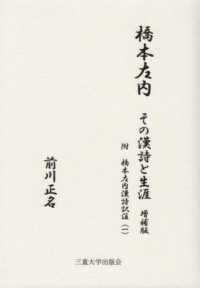 橋本左内
その漢詩と生涯 増補版
附 橋本左内漢詩訳注(一)
前川正名
三重大学出版会